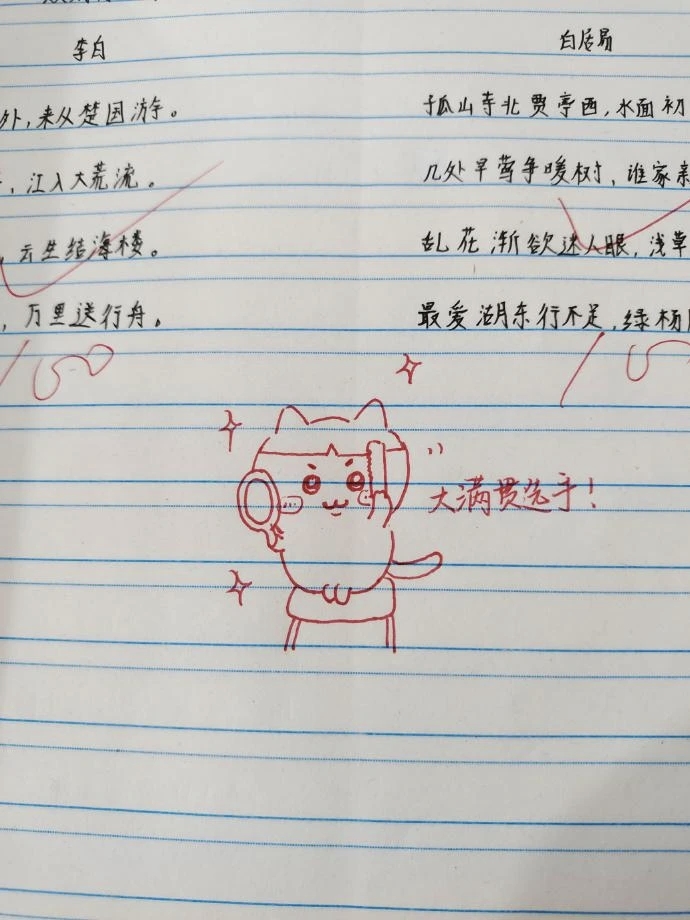 李白
白居易
外，来从楚国游。
孤山寺北贾亭西，水面初
，江入大荒流。
几处早莺争暖树，谁家
，云生结海楼。
乱花渐欲迷人眼，浅草
，万里送行舟。
最爱湖东行不足，绿杨
100
大满贯选手！